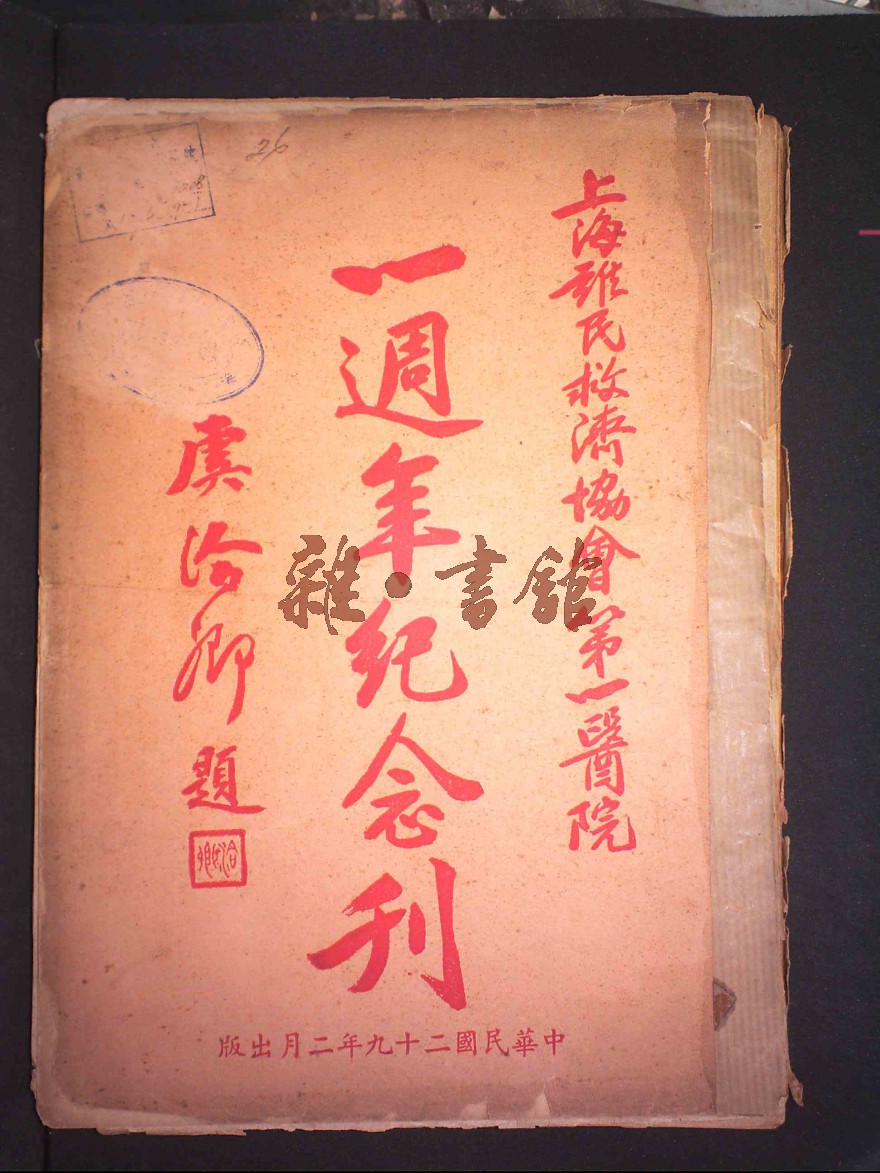 上海難民救濟協會第一醫院
一週年紀念刊
虞洽卿題
洽卿
中華民國二十九年二月出版
26
雜·書館